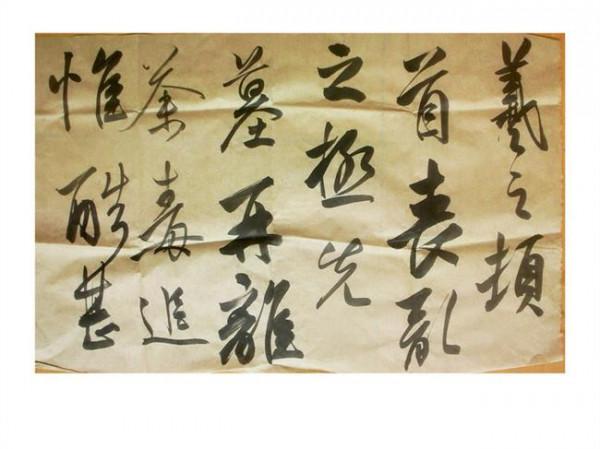 羲之頓
首喪亂
之極先
墓再離
荼毒追
惟酷甚